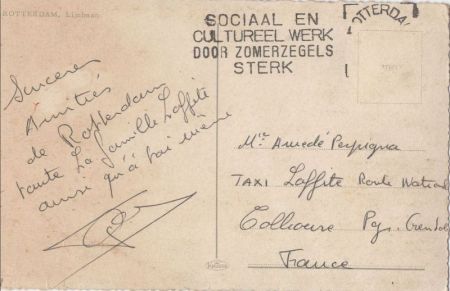 ROTTERDAM, Lijnbaan
SOCIAAL EN
CULTUREEL WERK
DOOR ZOMERZEGELS
STERK
ROTTERDAM
Sinceres
Amitiés
de Rotterdam
toute La famille Laffite
ainsi qu'à toi même
Mr Amedé Perpigna
TAXI Laffite Route National
Collioure Py.
France